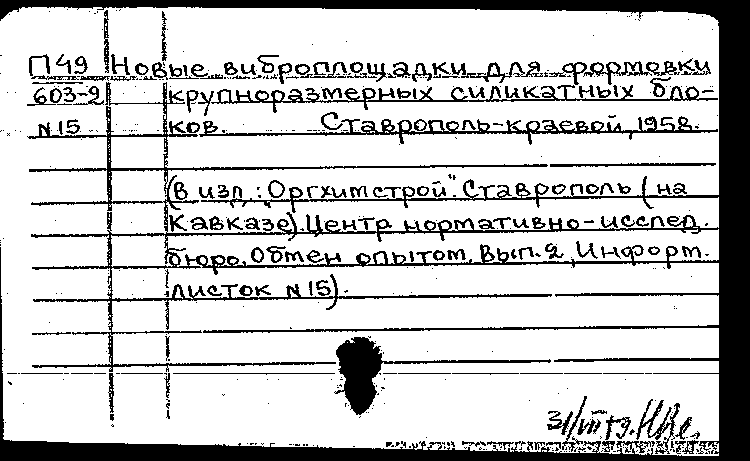 П49 Новые виброплощадки для формовки
603-2 крупноразмерных силикатных бло-
N15 ков. Ставрополь-краевой, 1958.
(В изд.: "Оргхимстрой". Ставрополь (на
Кавказе). Центр нормативно-исслед.
бюро. Обмен опытом. Вып. 2, Информ.
листок N15).
31/VIII